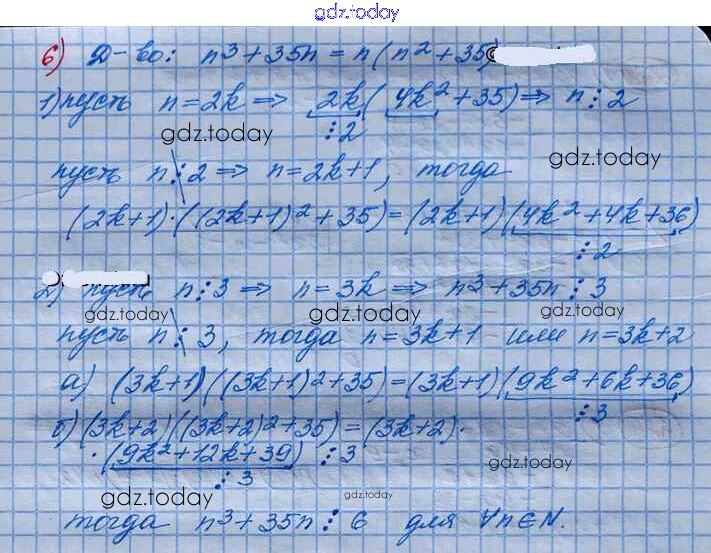 gdz.today
6) Д-во: n³+35n = n(n²+35)
1) пусть n=2k ⇒ 2k(4k²+35) ⇒ n⋮2
⋮2
gdz.today
gdz.today
пусть n⋮̸2 ⇒ n=2k+1, тогда
(2k+1)·((2k+1)²+35)=(2k+1)(4k²+4k+36)
⋮2
2) пусть n⋮3 ⇒ n=3k ⇒ n³+35n⋮3
gdz.today gdz.today gdz.today
пусть n⋮̸3, тогда n=3k+1 или n=3k+2
а) (3k+1)((3k+1)²+35)=(3k+1)(9k²+6k+36)
⋮3
б) (3k+2)((3k+2)²+35)=(3k+2)·
·(9k²+12k+39) ⋮3
⋮3
gdz.today
gdz.today gdz.today
тогда n³+35n⋮6 для ∀n∈N.